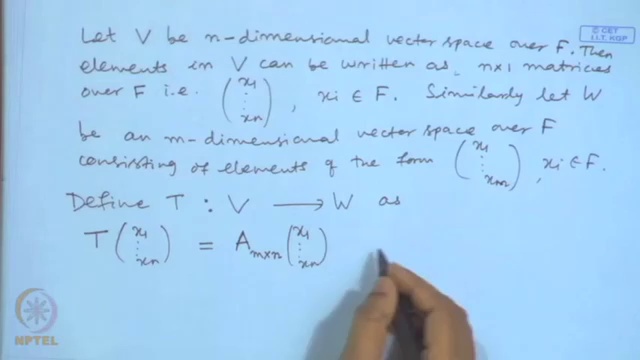 © CET
I.I.T. KGP
Let V be n-dimensional vector space over F. Then
elements in V can be written as, n×1 matrices
over F i.e. (x1 ⋮ xn), xi ∈ F. Similarly let W
be an m-dimensional vector space over F
consisting of elements of the form (x1 ⋮ xm), xi ∈ F.
Define T : V ⟶ W as
T(x1 ⋮ xn) = Am×n (x1 ⋮ xn)
NPTEL